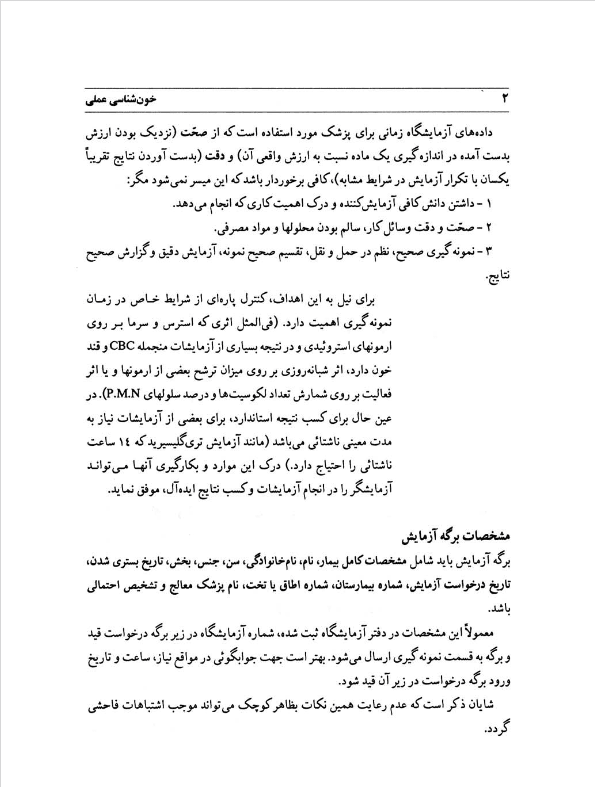 ۲ خون‌شناسی عملی
داده‌های آزمایشگاه زمانی برای پزشک مورد استفاده است که از صحّت (نزدیک بودن ارزش
بدست آمده در اندازه‌گیری یک ماده نسبت به ارزش واقعی آن) و دقت (بدست آوردن نتایج تقریباً
یکسان با تکرار آزمایش در شرایط مشابه)، کافی برخوردار باشد که این میسر نمی‌شود مگر:
۱ - داشتن دانش کافی آزمایش‌کننده و درک اهمیت کاری که انجام می‌دهد.
۲ - صحّت و دقت وسائل کار، سالم بودن محلولها و مواد مصرفی.
۳ - نمونه‌گیری صحیح، نظم در حمل و نقل، تقسیم صحیح نمونه، آزمایش دقیق و گزارش صحیح
نتایج.
برای نیل به این اهداف، کنترل پاره‌ای از شرایط خاص در زمان
نمونه‌گیری اهمیت دارد. (فی‌المثل اثری که استرس و سرما بر روی
ارمونهای استروئیدی و در نتیجه بسیاری از آزمایشات منجمله CBC و قند
خون دارد، اثر شبانه‌روزی بر روی میزان ترشح بعضی از ارمونها و یا اثر
فعالیت بر روی شمارش تعداد لکوسیت‌ها و درصد سلولهای P.M.N). در
عین حال برای کسب نتیجه استاندارد، برای بعضی از آزمایشات نیاز به
مدت معینی ناشتائی می‌باشد (مانند آزمایش تری‌گلیسیرید که ۱۴ ساعت
ناشتائی را احتیاج دارد.) درک این موارد و بکارگیری آنها می‌تواند
آزمایشگر را در انجام آزمایشات و کسب نتایج ایده‌آل، موفق نماید.
مشخصات برگه آزمایش
برگه آزمایش باید شامل مشخصات کامل بیمار، نام، نام‌خانوادگی، سن، جنس، بخش، تاریخ بستری شدن،
تاریخ درخواست آزمایش، شماره بیمارستان، شماره اطاق یا تخت، نام پزشک معالج و تشخیص احتمالی
باشد.
معمولاً این مشخصات در دفتر آزمایشگاه ثبت شده، شماره آزمایشگاه در زیر برگه درخواست قید
و برگه به قسمت نمونه‌گیری ارسال می‌شود. بهتر است جهت جوابگوئی در مواقع نیاز، ساعت و تاریخ
ورود برگه درخواست در زیر آن قید شود.
شایان ذکر است که عدم رعایت همین نکات بظاهر کوچک می‌تواند موجب اشتباهات فاحشی
گردد.